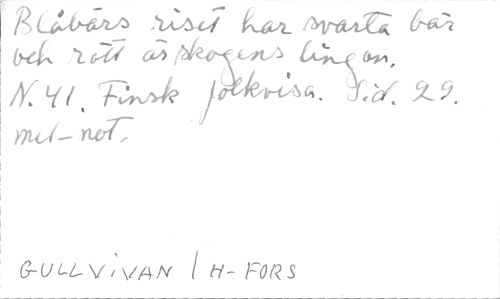 Blåbärs riset har svarta bär
och rött är skogens lingon.
N. 41. Finsk folkvisa. Sid. 29.
mel-not.
GULLVIVAN / H-FORS